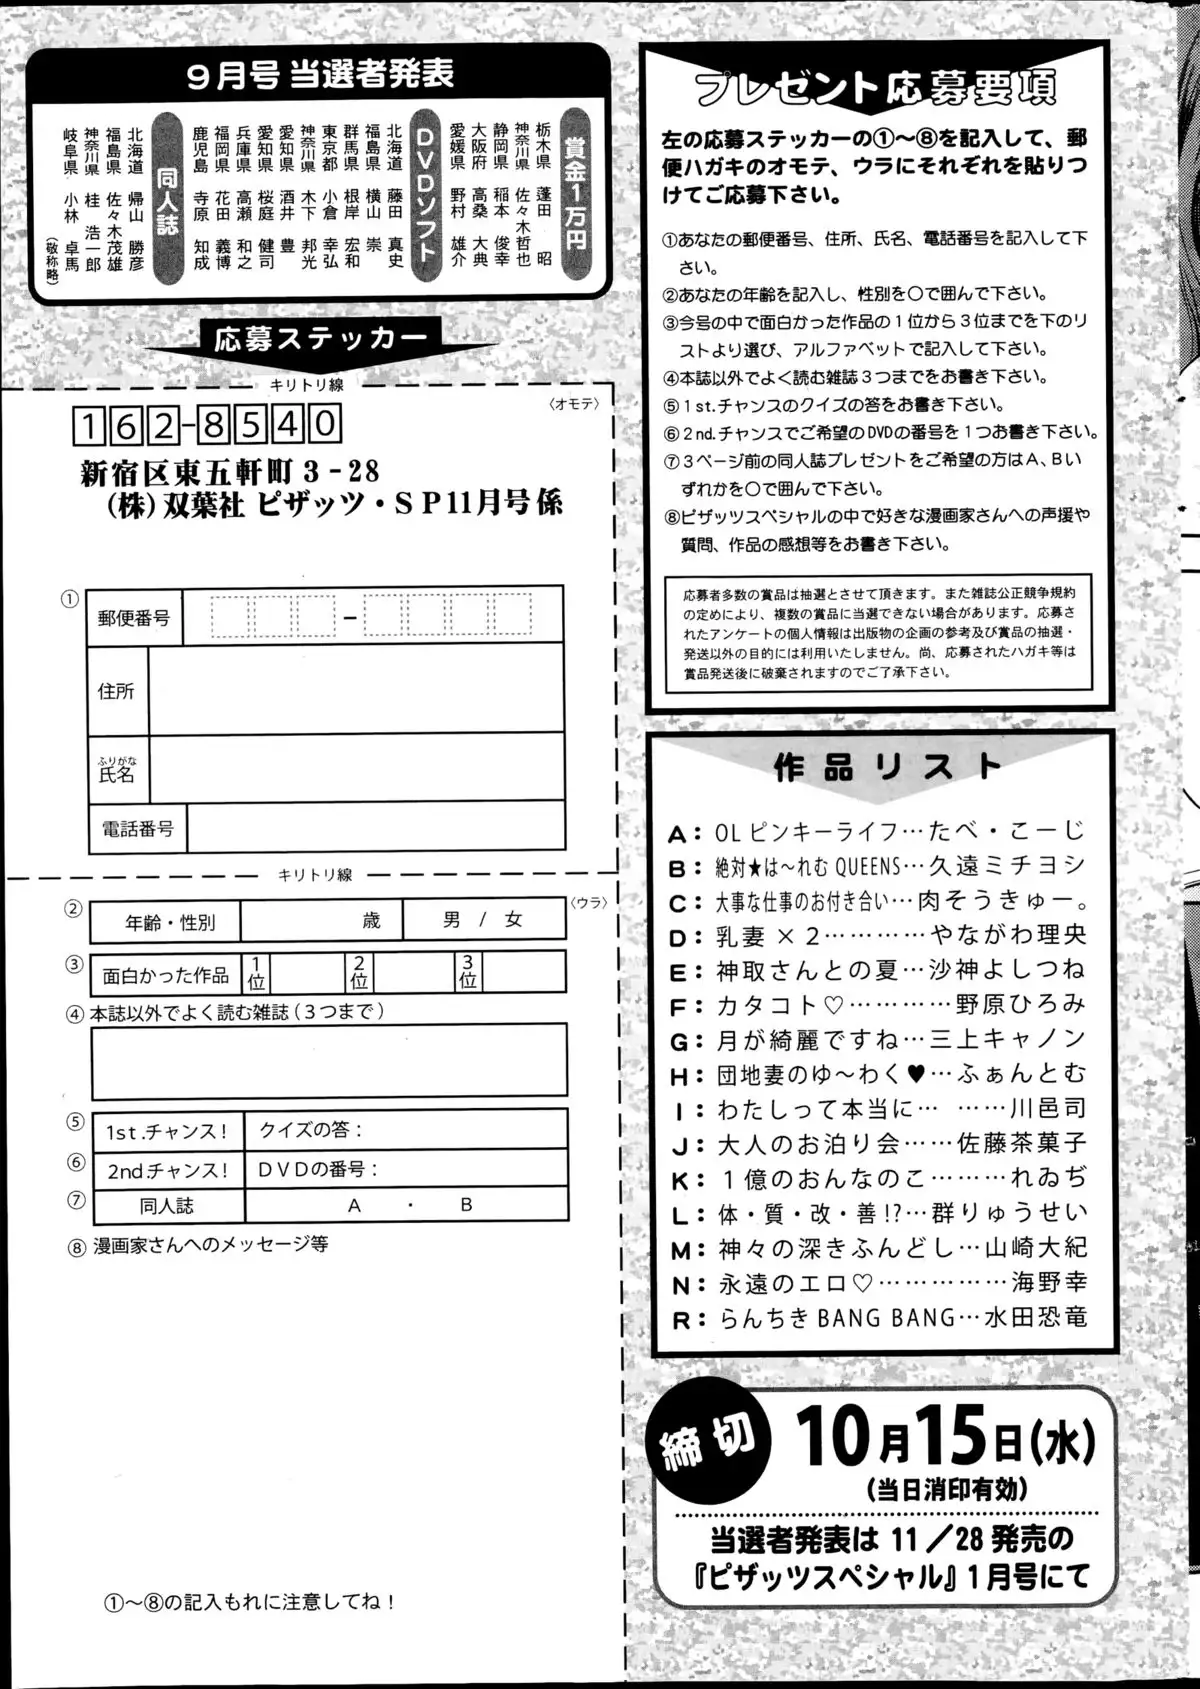 9月号 当選者発表
賞金1万円
栃木県 蓬田 昭
神奈川県 佐々木哲也
静岡県 稲本 俊幸
大阪府 高桑 大典
愛媛県 野村 雄介
DVDソフト
北海道 藤田 真史
福島県 横山 崇
群馬県 根岸 宏和
東京都 小倉 幸弘
神奈川県 木下 邦光
愛知県 酒井 豊
愛知県 桜庭 健司
兵庫県 高瀬 和之
福岡県 花田 義博
鹿児島 寺原 知成
同人誌
北海道 帰山 勝彦
福島県 佐々木茂雄
神奈川県 桂 浩一郎
岐阜県 小林 卓馬
(敬称略)
応募ステッカー
キリトリ線
〈オモテ〉
162-8540
新宿区東五軒町3-28
(株)双葉社 ピザッツ・SP11月号係
①
郵便番号
住所
ふりがな
氏名
電話番号
キリトリ線
〈ウラ〉
② 年齢・性別 歳 男 / 女
③ 面白かった作品 1位 2位 3位
④本誌以外でよく読む雑誌(3つまで)
⑤ 1st.チャンス! クイズの答:
⑥ 2nd.チャンス! DVDの番号:
⑦ 同人誌 A ・ B
⑧ 漫画家さんへのメッセージ等
①～⑧の記入もれに注意してね!
プレゼント応募要項
左の応募ステッカーの①～⑧を記入して、郵
便ハガキのオモテ、ウラにそれぞれを貼りつ
けてご応募下さい。
①あなたの郵便番号、住所、氏名、電話番号を記入して下
さい。
②あなたの年齢を記入し、性別を○で囲んで下さい。
③今号の中で面白かった作品の1位から3位までを下のリ
ストより選び、アルファベットで記入して下さい。
④本誌以外でよく読む雑誌3つまでをお書き下さい。
⑤1st.チャンスのクイズの答をお書き下さい。
⑥2nd.チャンスでご希望のDVDの番号を1つお書き下さい。
⑦3ページ前の同人誌プレゼントをご希望の方はA、Bい
ずれかを○で囲んで下さい。
⑧ピザッツスペシャルの中で好きな漫画家さんへの声援や
質問、作品の感想等をお書き下さい。
応募者多数の賞品は抽選とさせて頂きます。また雑誌公正競争規約
の定めにより、複数の賞品に当選できない場合があります。応募さ
れたアンケートの個人情報は出版物の企画の参考及び賞品の抽選・
発送以外の目的には利用いたしません。尚、応募されたハガキ等は
賞品発送後に破棄されますのでご了承下さい。
作品リスト
A:OLピンキーライフ…たべ・こーじ
B:絶対★は～れむQUEENS…久遠ミチヨシ
C:大事な仕事のお付き合い…肉そうきゅー。
D:乳妻×2…………やながわ理央
E:神取さんとの夏…沙神よしつね
F:カタコト♡…………野原ひろみ
G:月が綺麗ですね…三上キャノン
H:団地妻のゆ～わく♥…ふぁんとむ
I:わたしって本当に… ……川邑司
J:大人のお泊り会……佐藤茶菓子
K:1億のおんなのこ………れゐぢ
L:体・質・改・善!?…群りゅうせい
M:神々の深きふんどし…山崎大紀
N:永遠のエロ♡……………海野幸
R:らんちきBANG BANG…水田恐竜
締切
10月15日(水)
(当日消印有効)
当選者発表は11/28発売の
『ピザッツスペシャル』1月号にて